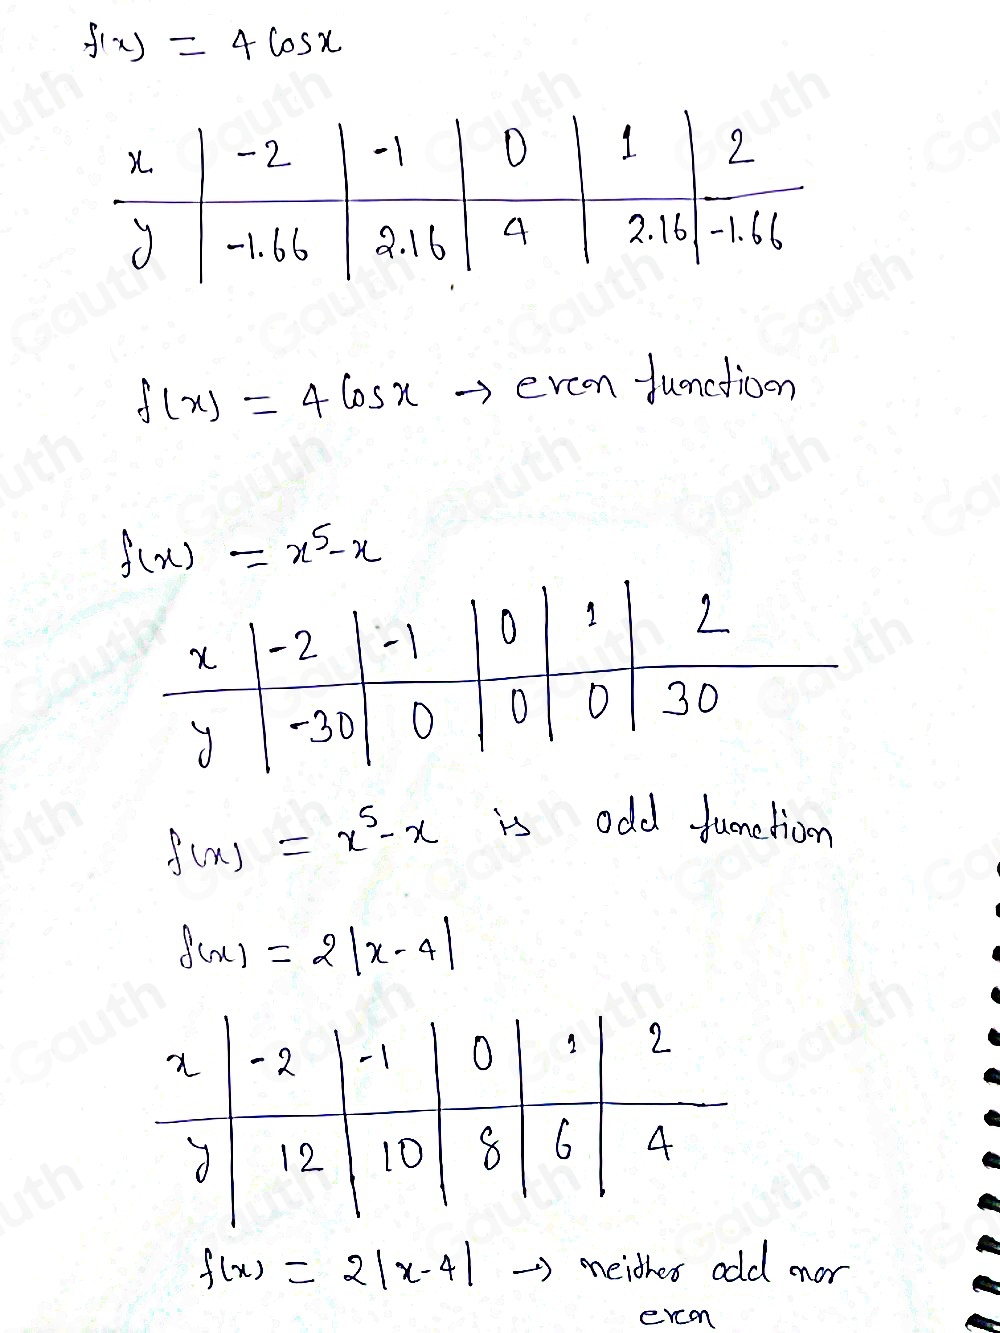 f(x) = 4 cosx
x -2 -1 0 1 2
y -1.66 2.16 4 2.16 -1.66
f(x) = 4 cosx → even function
f(x) = x⁵-x
x -2 -1 0 1 2
y -30 0 0 0 30
f(x) = x⁵-x is odd function
f(x) = 2|x-4|
x -2 -1 0 1 2
y 12 10 8 6 4
f(x) = 2|x-4| → neither odd nor
even